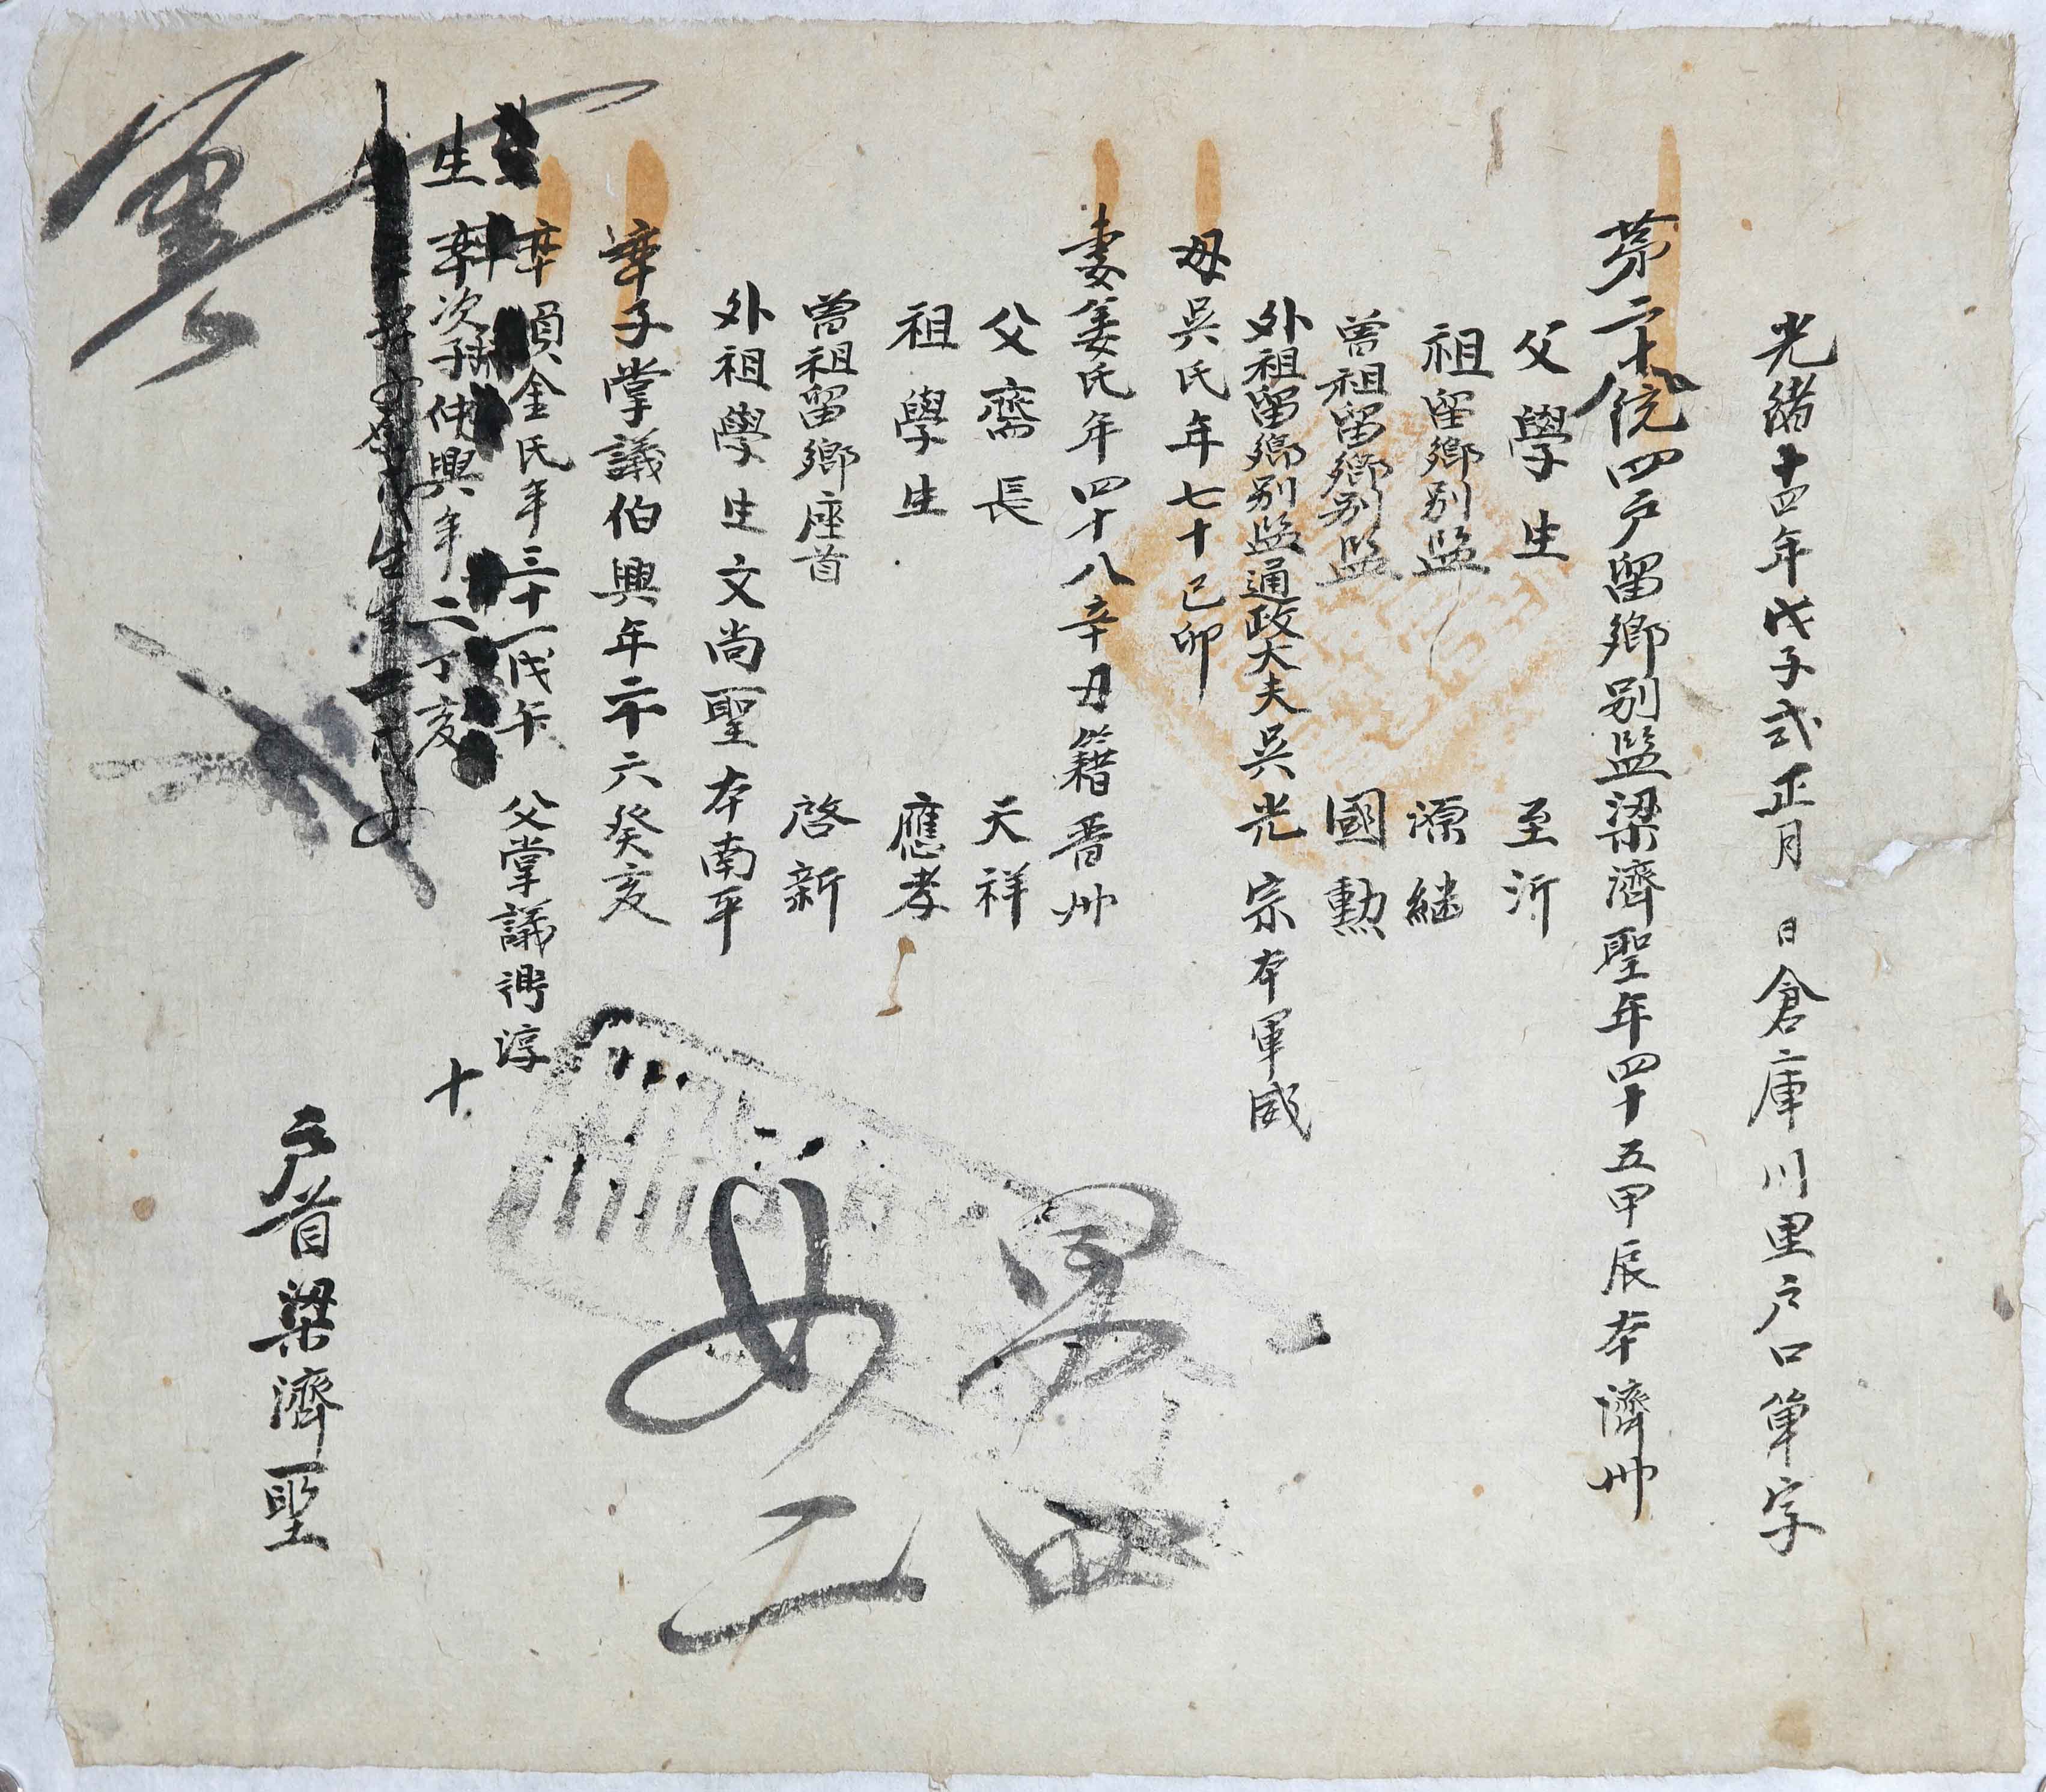 光緖十四年戊子式正月 日倉庫川里戶口單字
第二十八統四戶留鄕別監梁濟聖年四十五甲辰本濟州
父學生 至沂
祖留鄕別監 源継
曾祖留鄕別監 國勳
外祖留鄕別監通政大夫吳光宗本軍威
母吳氏年七十己卯
妻姜氏年四十八辛丑籍晋州
父齋長 天祥
祖學生 應孝
曾祖留鄕座首 啓新
外祖學生文尚聖本南平
率子掌議伯興年二十六癸亥
率 金氏年三十一戊午 父掌議 淳
生 率次子仲興年二丁亥 十
戶首梁濟聖